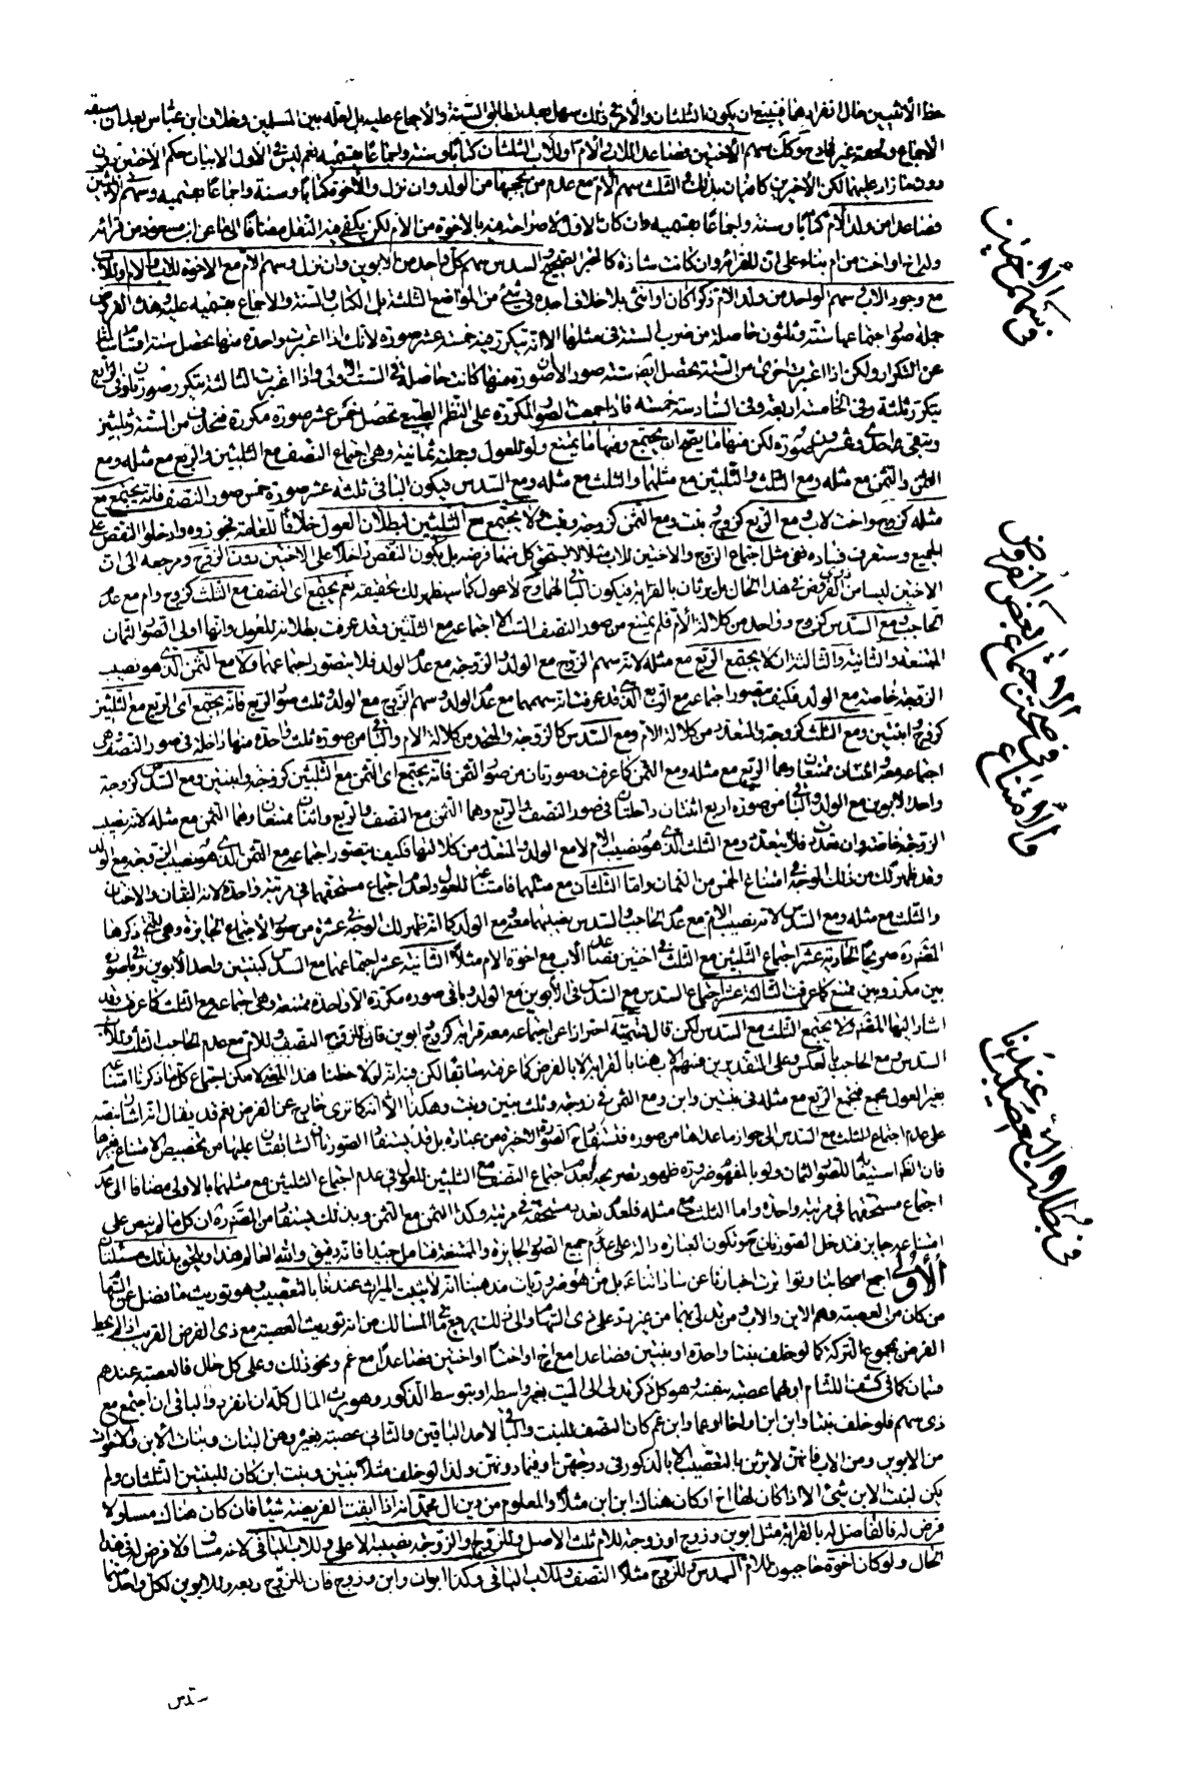 حظ الأنثيين حال انفرادهما فينبغي ان يكون الثلثان والأمر في ذلك سهل بعد تطابق السنة والأجماع عليه بل لعله بين المسلمين وخلاف ابن عباس بعد ان سبقه
الاجماع ولحقه غير قادح وكك سهم الأختين فصاعدا للأب والأم او للأب الثلثان كتابا وسنة واجماعا بقسميه نعم ليس في الأول الا بيان حكم الأختين دون
فصاعدا من ولد الأم كتابا وسنة واجماعا بقسميه وان كان الاول لا صراحة فيه بالاخوة من الأم لكن يكفي فيه النقل مضافا الى ما عن ابن مسعود من قرائة
وله اخ او اخت من ام بناء على ان القراءة وان كانت شاذة كالخبر الصحيح والسدس سهم كل واحد من الأبوين مع الولد وان نزل وسهم الأم مع الاخوة للأب والأم او للأب
مع وجود الاب وسهم الواحد من ولد الام ذكرا كان او انثى بلا خلاف اجده في شيء من المواضع الثلثة بل الكتاب والسنة والاجماع بقسميه عليه وهذه الفروض
جملة صور اجتماعها ستة وثلثون حاصلة من ضرب الستة في مثلها الا انه يتكرر فيه خمسة عشر صورة لأنك اذا اعتبرت واحدة منها يحصل ستة
عن التكرار ولكن اذا اعتبرت اخرى من الستة يحصل ايضا ستة صور الا ان صورة منها كانت حاصلة في الست الاولى واذا اعتبرت الثالثة يتكرر صورتان وفي الرابع
يتكرر ثلثة وفي الخامسة اربعة وفي السادسة خمسة فاذا جمعت الصور المكررة على النظم الطبيعي تحصل خمس عشر صورة مكررة فتحذف من الستة وثلثين
ويبقى احدى وعشرون صورة لكن منها ما يصح ان يجتمع ومنها ما يمتنع ولو للعول وجملته ثمانية وهي اجتماع النصف مع الثلثين والربع مع مثله ومع
الثمن والثمن مع مثله ومع الثلث والثلثين مع مثلهما والثلث مع مثله ومع السدس فيكون الباقي ثلثة عشر صورة خمس صور النصف فانه يجتمع مع
مثله كزوج واخت لاب ومع الربع كزوج وبنت ومع الثمن كزوجة وبنت ولا يجتمع مع الثلثين لبطلان العول خلافا للعامة فجوزوه وادخلوا النقص على
الجميع وستعرف فساده ففي مثل اجتماع الزوج والاختين للاب مثلا لا يستحق كل منهما فرضه بل يكون النقص داخلا على الاختين دون الزوج ومرجعه الى ان
الاختين ليستا من ذوي الفروض في هذا الحال بل يرثان بالقرابة فيكون الباقي لهما ولا عول كما سيظهر لك تحقيقه نعم يجتمع اى النصف مع الثلث كزوج وام مع عدم
الحاجب ومع السدس كزوج وواحد من كلالة الأم فلم يمتنع من صور النصف الست الا اجتماعه مع الثلثين وقد عرفت بطلانه للعول وانها اولى الصور الثمان
الممتنعة والثانية والثالثة ان لا يجتمع الربع مع مثله لانه سهم الزوج مع الولد والزوجة مع عدم الولد فلا يتصور اجتماعهما ولا مع الثمن الذي هو نصيب
الزوجة خاصة مع الولد فكيف يتصور اجتماعه مع الربع الذي قد عرفت انه سهمها مع عدم الولد وسهم الزوج مع الولد وثلث صور الربع فانه يجتمع اى الربع مع الثلثين
كزوج وابنتين ومع الثلث كزوجة والمتعدد من كلالة الأم ومع السدس كالزوجة والمتحد من كلالة الام والباقي من صوره ثلث واحدة منها داخلة في صور النصف وهي
اجتماعه معه واثنتان ممتنعتان وهما الربع مع مثله ومع الثمن كما عرفت وصورتان من صور الثمن فانه يجتمع اى الثمن مع الثلثين كزوجة وابنتين ومع السدس كزوجة
واحد الابوين مع الولد والباقي من صوره اربع اثنتان داخلتان في صور النصف والربع وهما الثمن مع النصف والربع واثنتان ممتنعتان وهما الثمن مع مثله لانه نصيب
الزوجة خاصة وان تعددت فلا يتعدد ومع الثلث الذي هو نصيب الام لا مع الولد والمتعدد من كلالتها فكيف يتصور اجتماعه مع الثمن الذي هو نصيب الزوجة مع الولد
وقد ظهر لك من ذلك الوجه في امتناع الخمس من الثمان واما الثلثان مع مثلهما فامتناعه للعول ولعدم اجتماع مستحقهما في مرتبة واحدة لانه البنتان والاختان
والثلث مع مثله ومع السدس لانه نصيب الام مع عدم الحاجب والسدس نصيبها معه ومع الولد كما انه ظهر لك الوجه في عشرة من صور الاجتماع الجايزة وهي التي ذكرها
المصنف صريحا الحادية عشر اجتماع الثلثين مع الثلث في اختين فصاعدا لأب مع اخوة الام مثلا الثانية عشر اجتماعهما مع السدس كبنتين واحد الأبوين وباقي صوره
بين مكرر وبين ممتنع كما عرفت الثالثة عشر اجتماع السدس مع السدس في الأبوين مع الولد وباقي صوره مكررة الا واحدة ممتنعة وهي اجتماعه مع الثلث كما عرفت وقد
اشار اليها المصنف ولا يجتمع الثلث مع السدس لكن قال تسمية احترازا عن اجتماعه معه قرابة كزوج وابوين فان للزوج النصف وللام مع عدم الحاجب الثلث وللاب
السدس مع الحاجب بالعكس وعلى التقديرين فسهم الاب هنا بالقرابة لا بالفرض كما عرفته سابقا لكن فيه انه لو لاحظنا هذا المعنى لامكن اجتماع كل ما ذكرنا امتناعه
بغير العول فيجتمع الربع مع مثله في بنتين وابن ومع الثمن في زوجة وثلث بنين وبنت وهكذا الا انه كما ترى خارج عن الفرض نعم قد يقال انه اراد بنصه
على عدم اجتماع الثلث مع السدس الى جواز ما عداها من صوره فتستفاد الصور الاخيرة من عبارته بل قد يستفاد الصورتان السابقتان عليها من تخصيص الامتناع بغيرها
اجتماع مستحقهما في مرتبة واحدة واما الثلث مع مثله فلعدم تعدد مستحقه في مرتبة وكذا الثمن مع الثمن وبذلك يستفاد من المصنف ان كل ما لم ينص على
امتناعه جايز فتدخل الصورتان فتكون العبارة دالة على جميع الصور الجايزة والممتنعة فتامل جيدا فانه دقيق والله العالم هذا ويلحق بذلك مسئلتان
الأولى اجمع اصحابنا وتواترت اخبارنا عن ساداتنا ع بل هو من ضروريات مذهبنا انه لا يثبت الميراث عندنا بالتعصيب وهو توريث ما فضل عن السهام
من كان من العصبة وهم الابن والاب ومن تدلى بهما من غير رد على ذوي السهام والى ذلك يرجع ما في المسالك من انه توريث العصبة مع ذى الفرض القريب اذا لم يحط
الفرض بمجموع التركة كما لو خلف بنتا واحدة او بنتين فصاعدا مع اخ او اختا او اختين فصاعدا مع عم ونحو ذلك وعلى كل حال فالعصبة عندهم
قسمان كما في كشف اللثام اولهما عصبة بنفسه وهو كل ذكر تدلى الى الميت بغير واسطة او بتوسط الذكور وهو يرث المال كله ان انفرد والباقي ان اجتمع مع
ذى سهم فلو خلف بنتا وابن ابن او اخا او عما او ابن عم كان النصف للبنت والباقي لاحد الباقين والثاني عصبة بغيره وهن البنات وبنات الابن والاخوات
من الابوين ومن الاب فانهن لا يرثن بالتعصيب الا بالذكور في درجتهن او فيما دونهن ولذا لو خلف مثلا بنتين وبنت ابن كان للبنتين الثلثان ولم
يكن لبنت الابن شيء الا اذا كان لها اخ او كان هناك ابن ابن مثلا والمعلوم من دين ال محمد انه اذا ابقت الفريضة شيئا فان كان هناك مساو لا
فرض له فالفاضل له بالقرابة مثل ابوين وزوج او زوجة للام ثلث الاصل وللزوج او الزوجة نصيبه الاعلى وللاب الباقي لانه مساو لا فرض له في هذا
الحال ولو كان اخوة حاجبون للام السدس وللزوج مثلا النصف وللاب الباقي وكذا ابوان وابن وزوج فان للزوج ربعه وللابوين لكل واحد منهما
سدس
في سهم الأختين
في صحة اجتماع بعض الفروض
والامتناع
في بطلان التعصيب عندنا